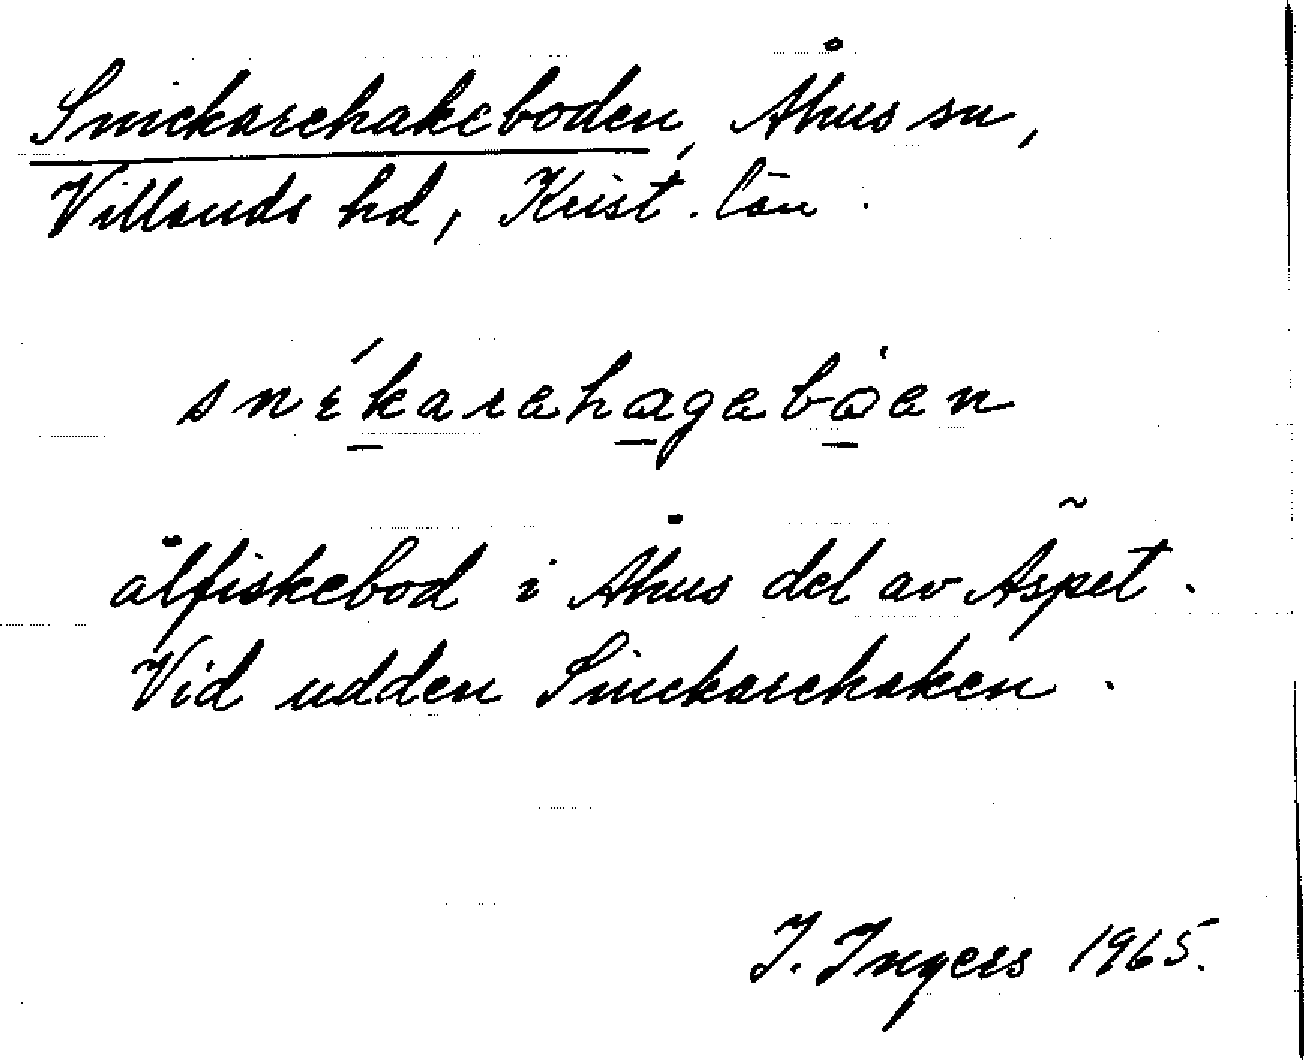 Snickarehakeboden, Åhus sn,
Villands hd, Krist. län.
snékarehagebåen
ålfiskebod i Åhus del av Äspet.
Vid udden Snickarehaken.
I. Ingers 1965.